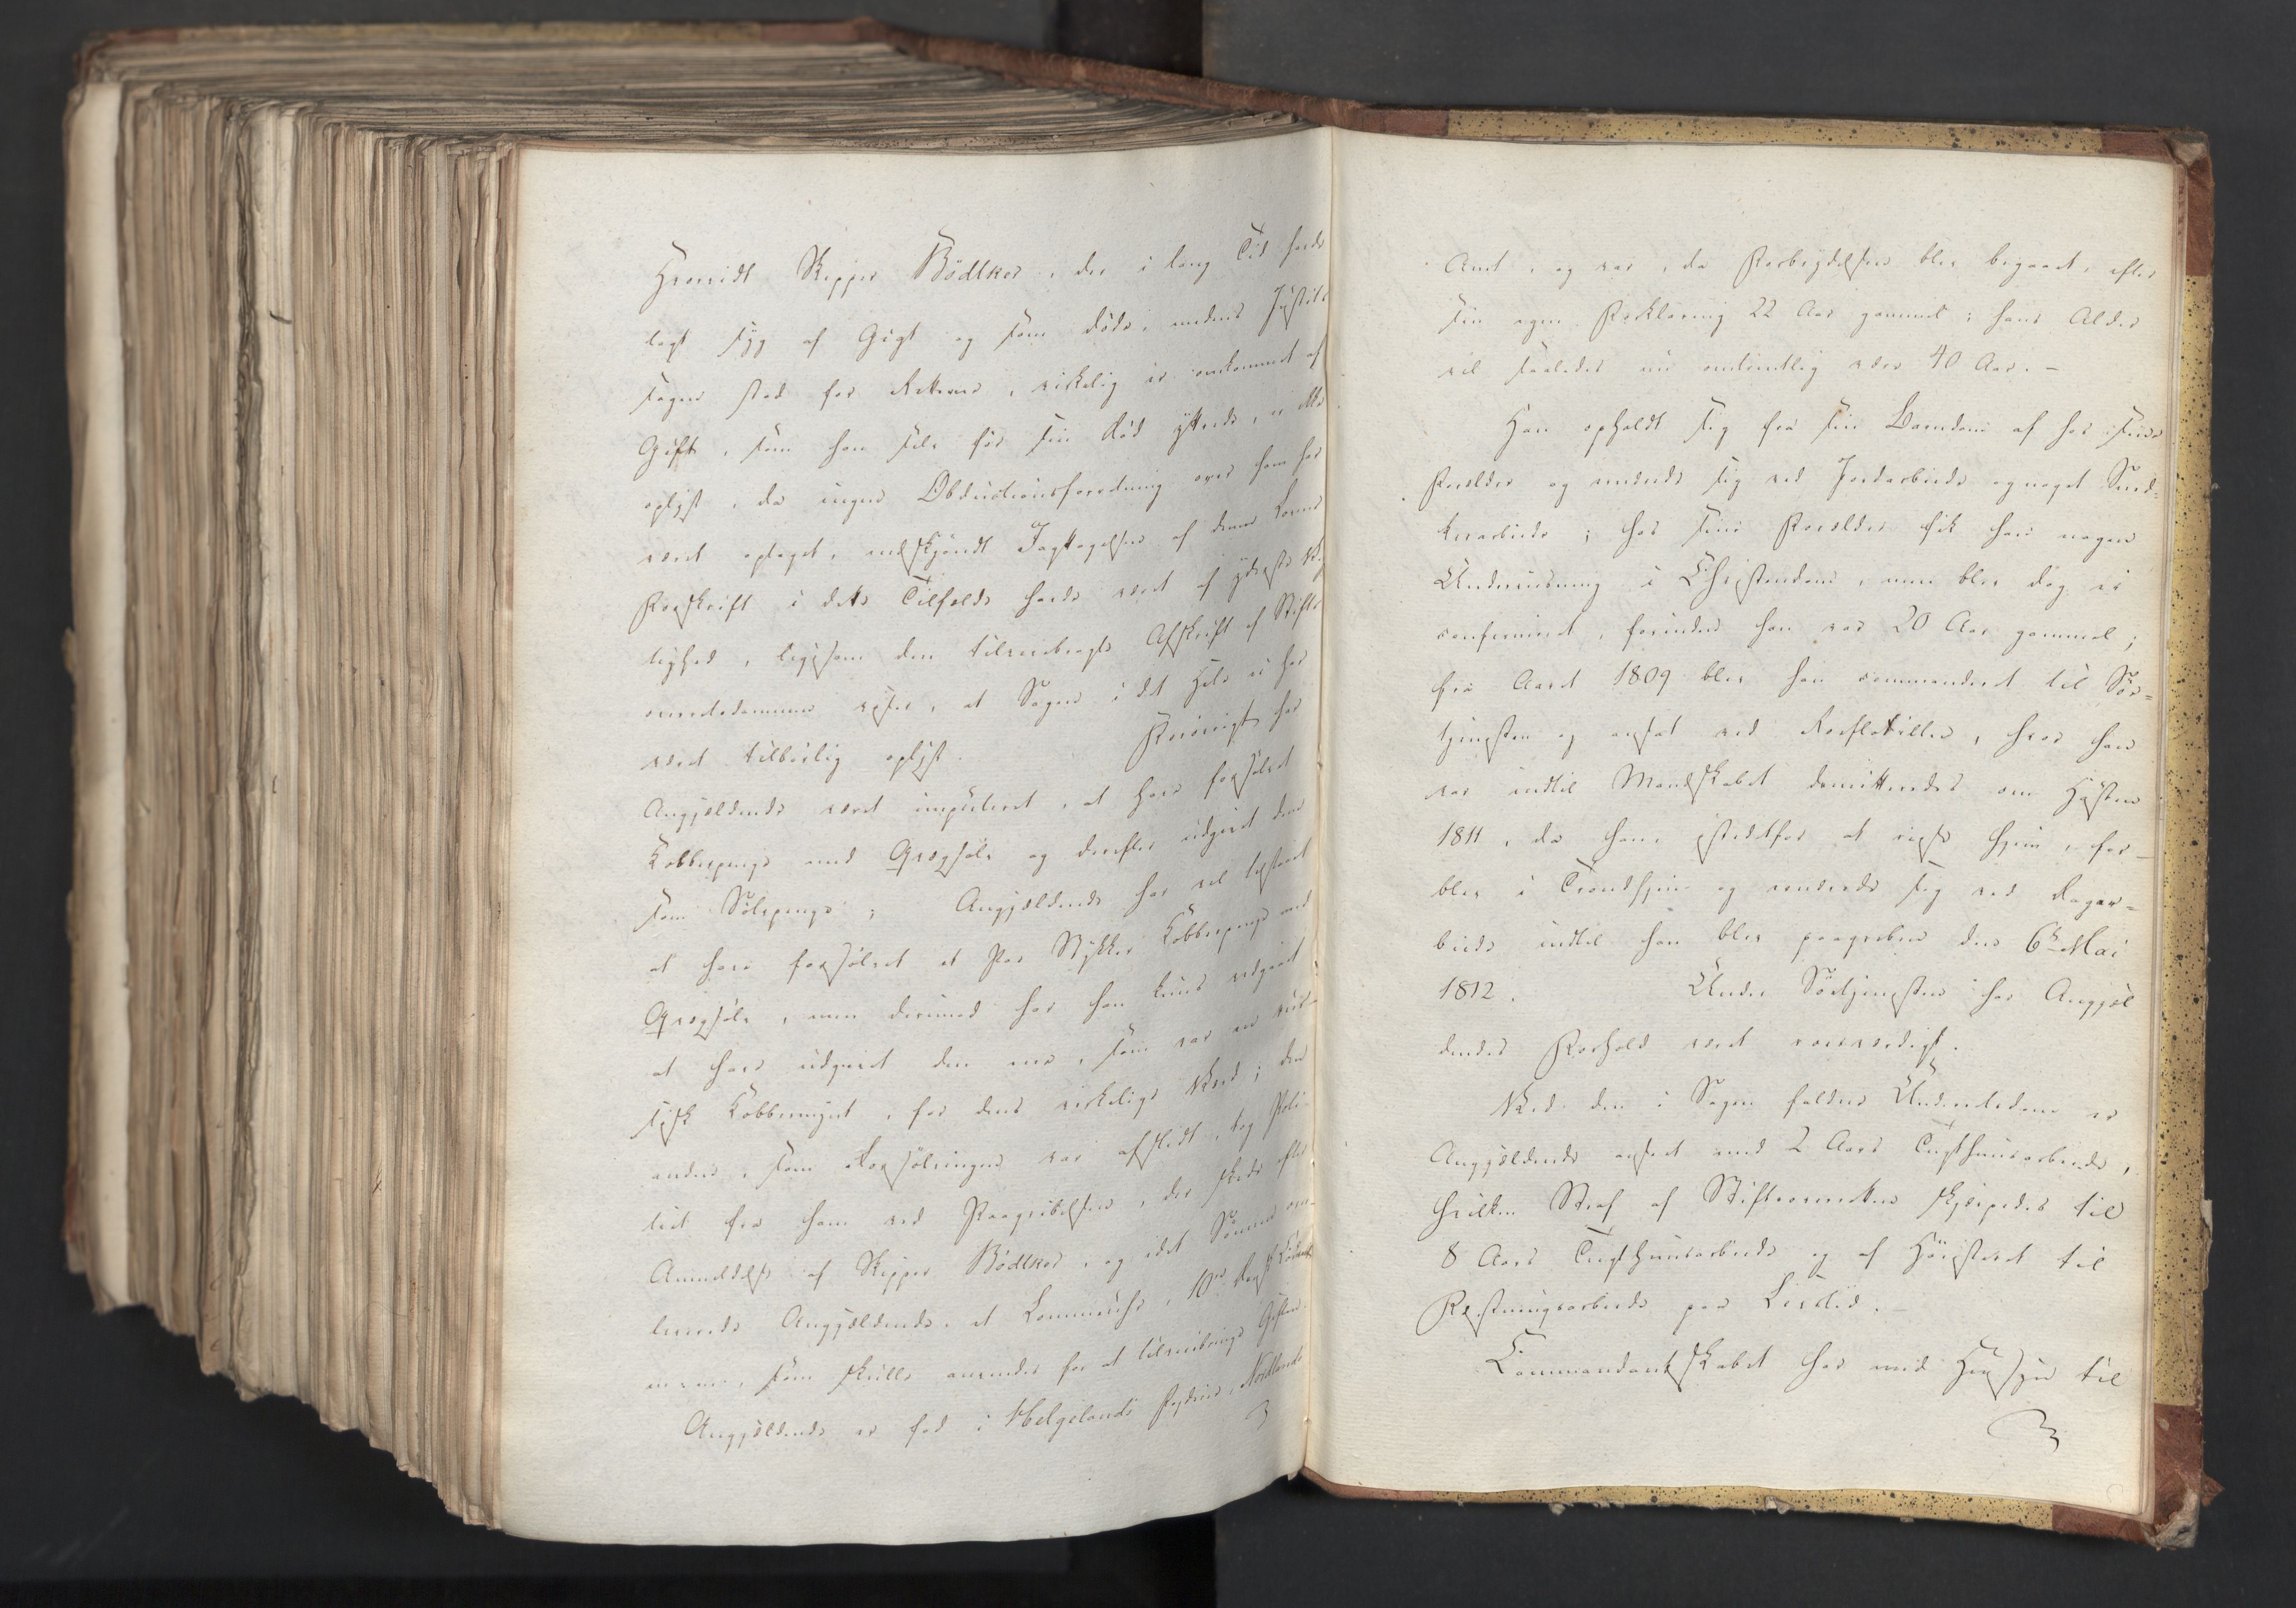 Hvorvidt Skipper Bödtker, der i lang Tid havde
lagt syg af Gigt og som döde, medens Justits
sagen stod for Retten, virkelig er omkommet af
Gift, som han selv før sin Död yttrede, er ikke
oplyst, da ingen Obductionsforretning over ham har
været optaget, endskjöndt Iagttagelsen af denne Lovens
Forskrift i dette Tilfælde havde været af yderste Vig
tighed, ligesom den tilveiebragte Afskrift af Stifts
overretsdommen viser, at Sagen i det Hele ei har
været tilbörlig oplyst. Forövrigt har
Angjældende været imputeret, at have forsölvet
Kobberpenge med Qvægsölv og derefter udgivet dem
som Sölvpenge; Angjældende har vel tilstaaet
at have forsölvet et Par Stykker Kobberpenge med
Qvægsölv, men derimod har han kuns vedgaaet
at have udgivet den ene, som var en rus-
sisk Kobbermynt, for dens virkelige Værd; den
anden, som Forsölvingen var afslidt, tog Poli-
tiet fra ham ved Paagribelsen, der skede efter
Anmeldelse af Skipper Bödtker, og idet Sönnen
leverede Angjældende, et Lommeuhr, 10
, som skulle anvendes for at tilveiebringe Giften.
Angjældende er föd i Helgelands Fogderie, Nordlands
Amt, og var, da Forbrydelsen blev begaaet, efter
sin egen Forklaring 22 Aar gammel; hans Alder
vil saaledes nu omtrentlig være 40 Aar. —
Han opholdt sig fra sin Barndom af hos sine
Forældre og nærede sig ved Jordarbeide og noget Sned-
kerarbeide; hos sine Forældre fik han nogen
Underviisning i Christendom, men blev dog ei
confirmeret, forinden han var 20 Aar gammel;
fra Aaret 1809 blev han commanderet til Söe-
tjenesten og ansat ved Roeflotillen, hvor han
var indtil Mandskabet demitteredes om Hösten
1811, da han, istedetfor at reise hjem, for-
blev i Trondhjem og nærede sig ved Dagar-
beide indtil han blev paagreben den 6te Mai
1812. Under Söetjenesten har Angjæl
dendes Forhold været roesværdigt.
Ved den i Sagen faldne Underretsdom er
Angjældende anseet med 2 Aars Tugthuusarbeide,
hvilken Straf af Stiftsoverretten skjærpedes til
8 Aars Tugthuusarbeide og af Höiesteret til
Fæstningsarbeide paa Livstid. —
Commandantskabet har med Hensyn til